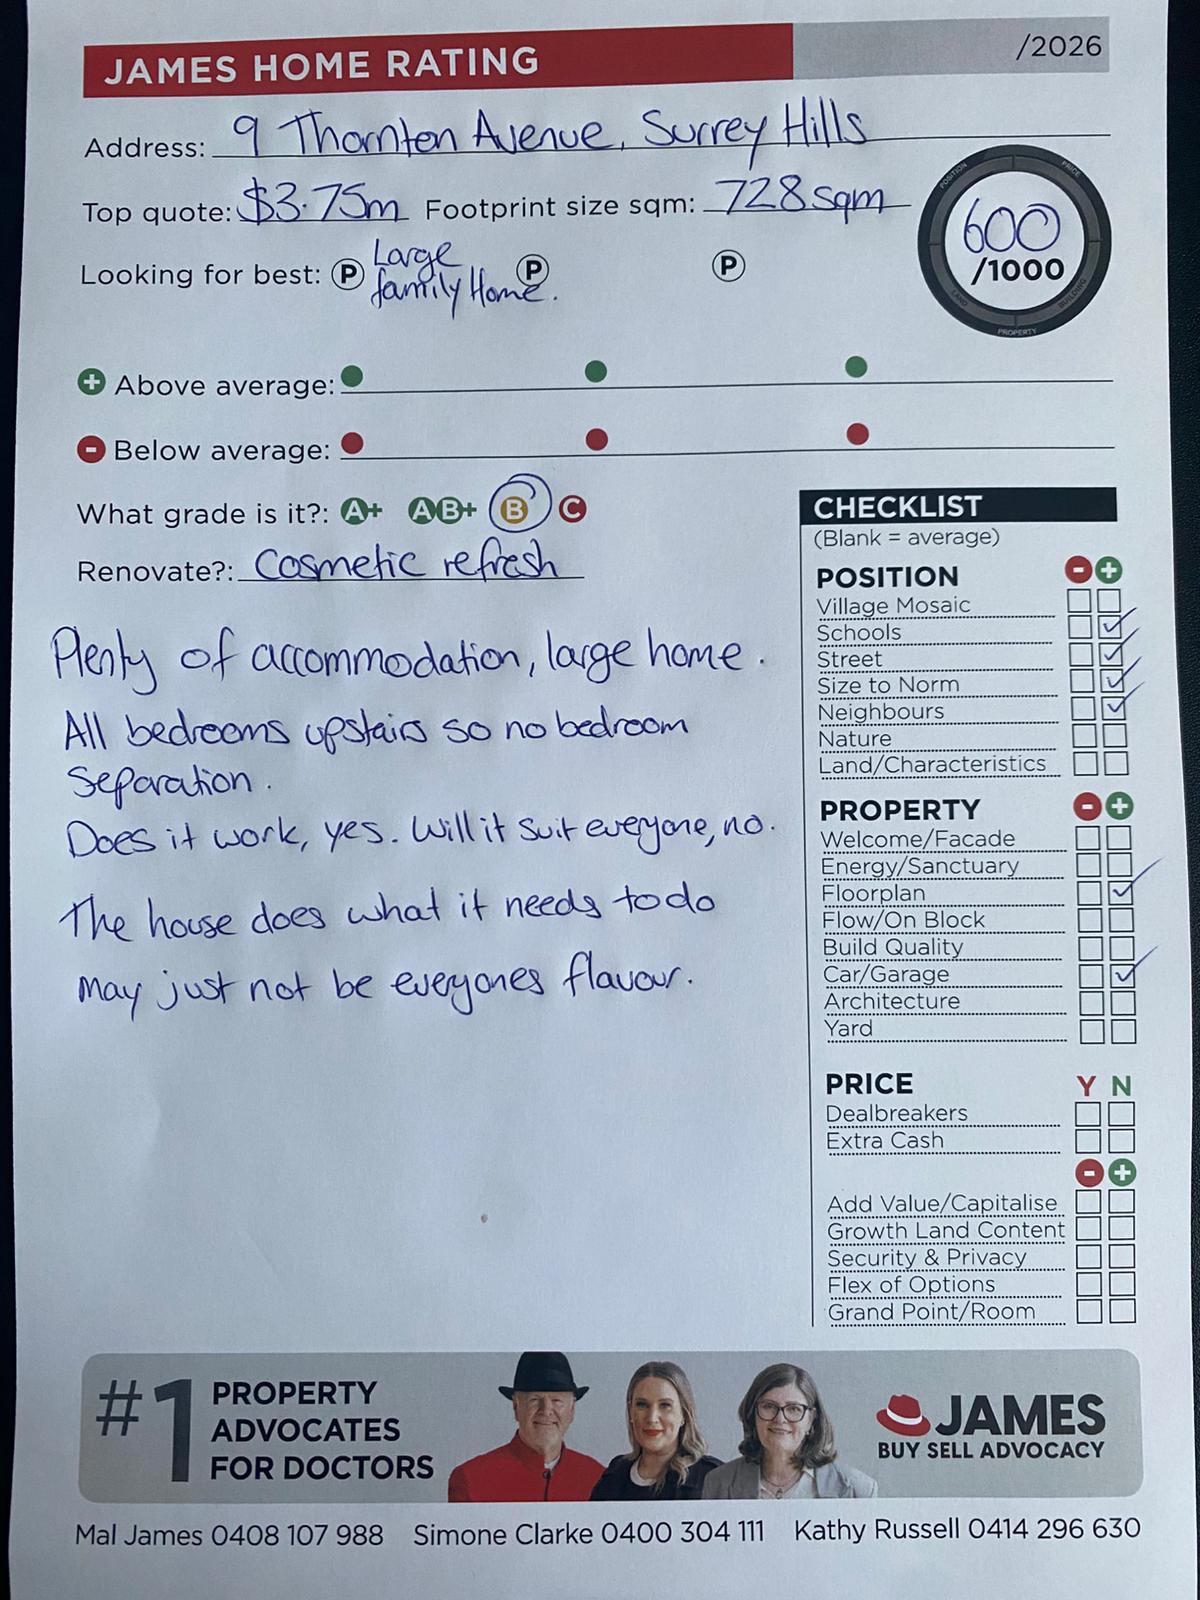 JAMES HOME RATING
/2026
Address: 9 Thornton Avenue, Surrey Hills
Top quote: $3.75m Footprint size sqm: 728sqm
600
/1000
POSITION
PRICE
BUILDING
PROPERTY
LAND
Looking for best: P Large family Home. P P
+ Above average:
- Below average:
What grade is it?: A+ AB+ B C
Renovate?: Cosmetic refresh
Plenty of accommodation, large home.
All bedrooms upstairs so no bedroom
separation.
Does it work, yes. Will it suit everyone, no.
The house does what it needs to do
may just not be everyones flavour.
CHECKLIST
(Blank = average)
POSITION - +
Village Mosaic
Schools
Street
Size to Norm
Neighbours
Nature
Land/Characteristics
PROPERTY - +
Welcome/Facade
Energy/Sanctuary
Floorplan
Flow/On Block
Build Quality
Car/Garage
Architecture
Yard
PRICE Y N
Dealbreakers
Extra Cash
- +
Add Value/Capitalise
Growth Land Content
Security & Privacy
Flex of Options
Grand Point/Room
#1 PROPERTY
ADVOCATES
FOR DOCTORS
JAMES
BUY SELL ADVOCACY
Mal James 0408 107 988 Simone Clarke 0400 304 111 Kathy Russell 0414 296 630